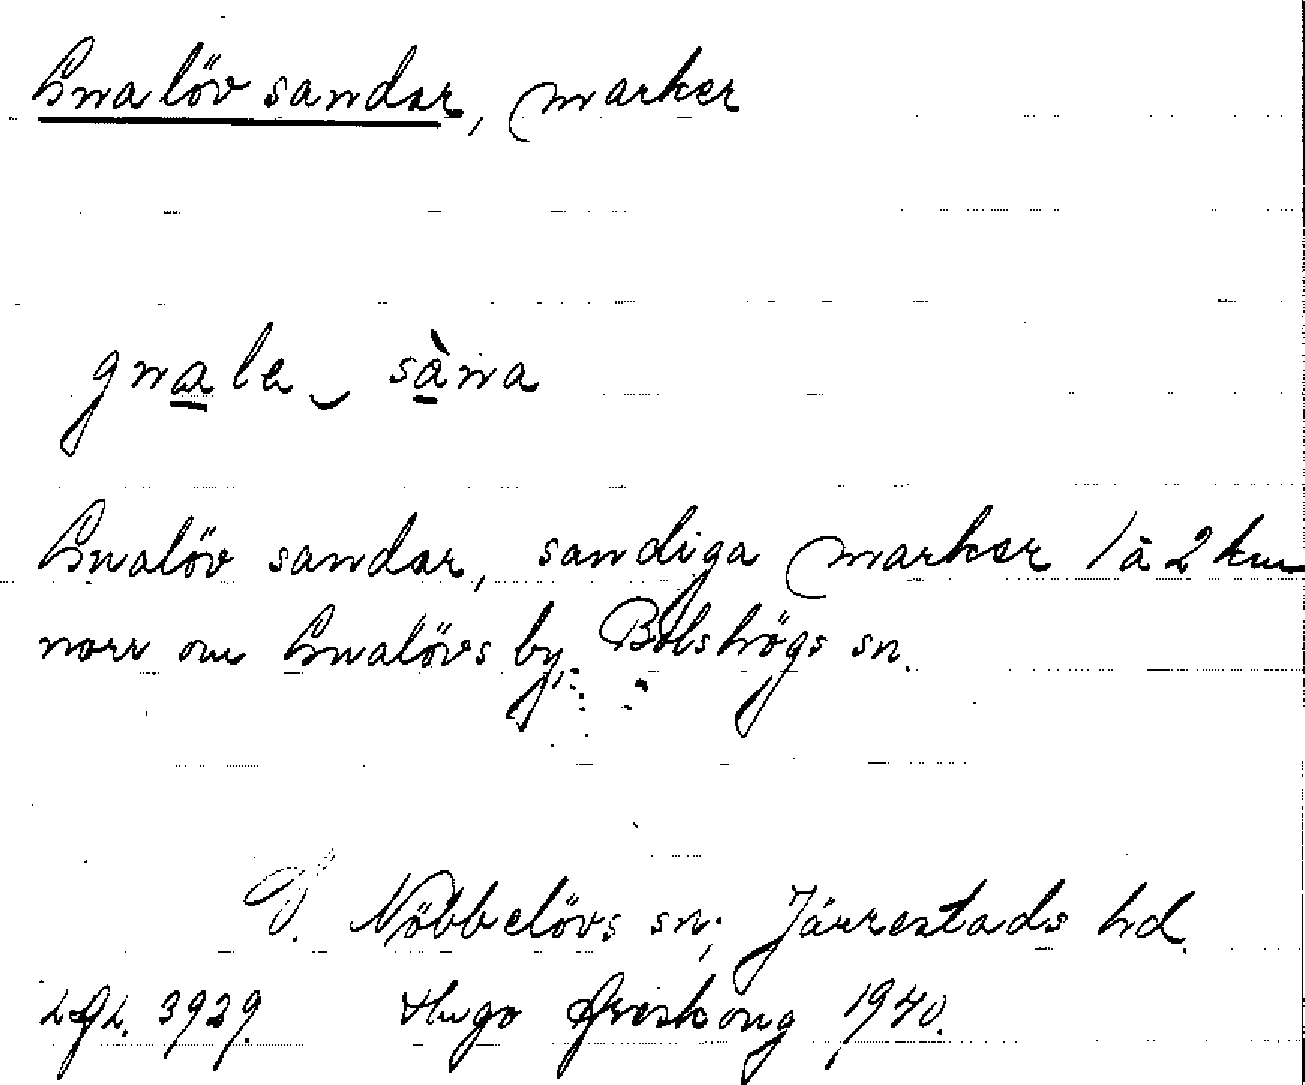 Gnalöv sandar, marker
gnale‿ sàna
Gnalöv sandar, sandiga marker 1 à 2 km
norr om Gnalövs by, Bolshögs sn.
Ö. Nöbbelövs sn; Järrestads hd.
LGL. 3929. Hugo Areskoug 1940.